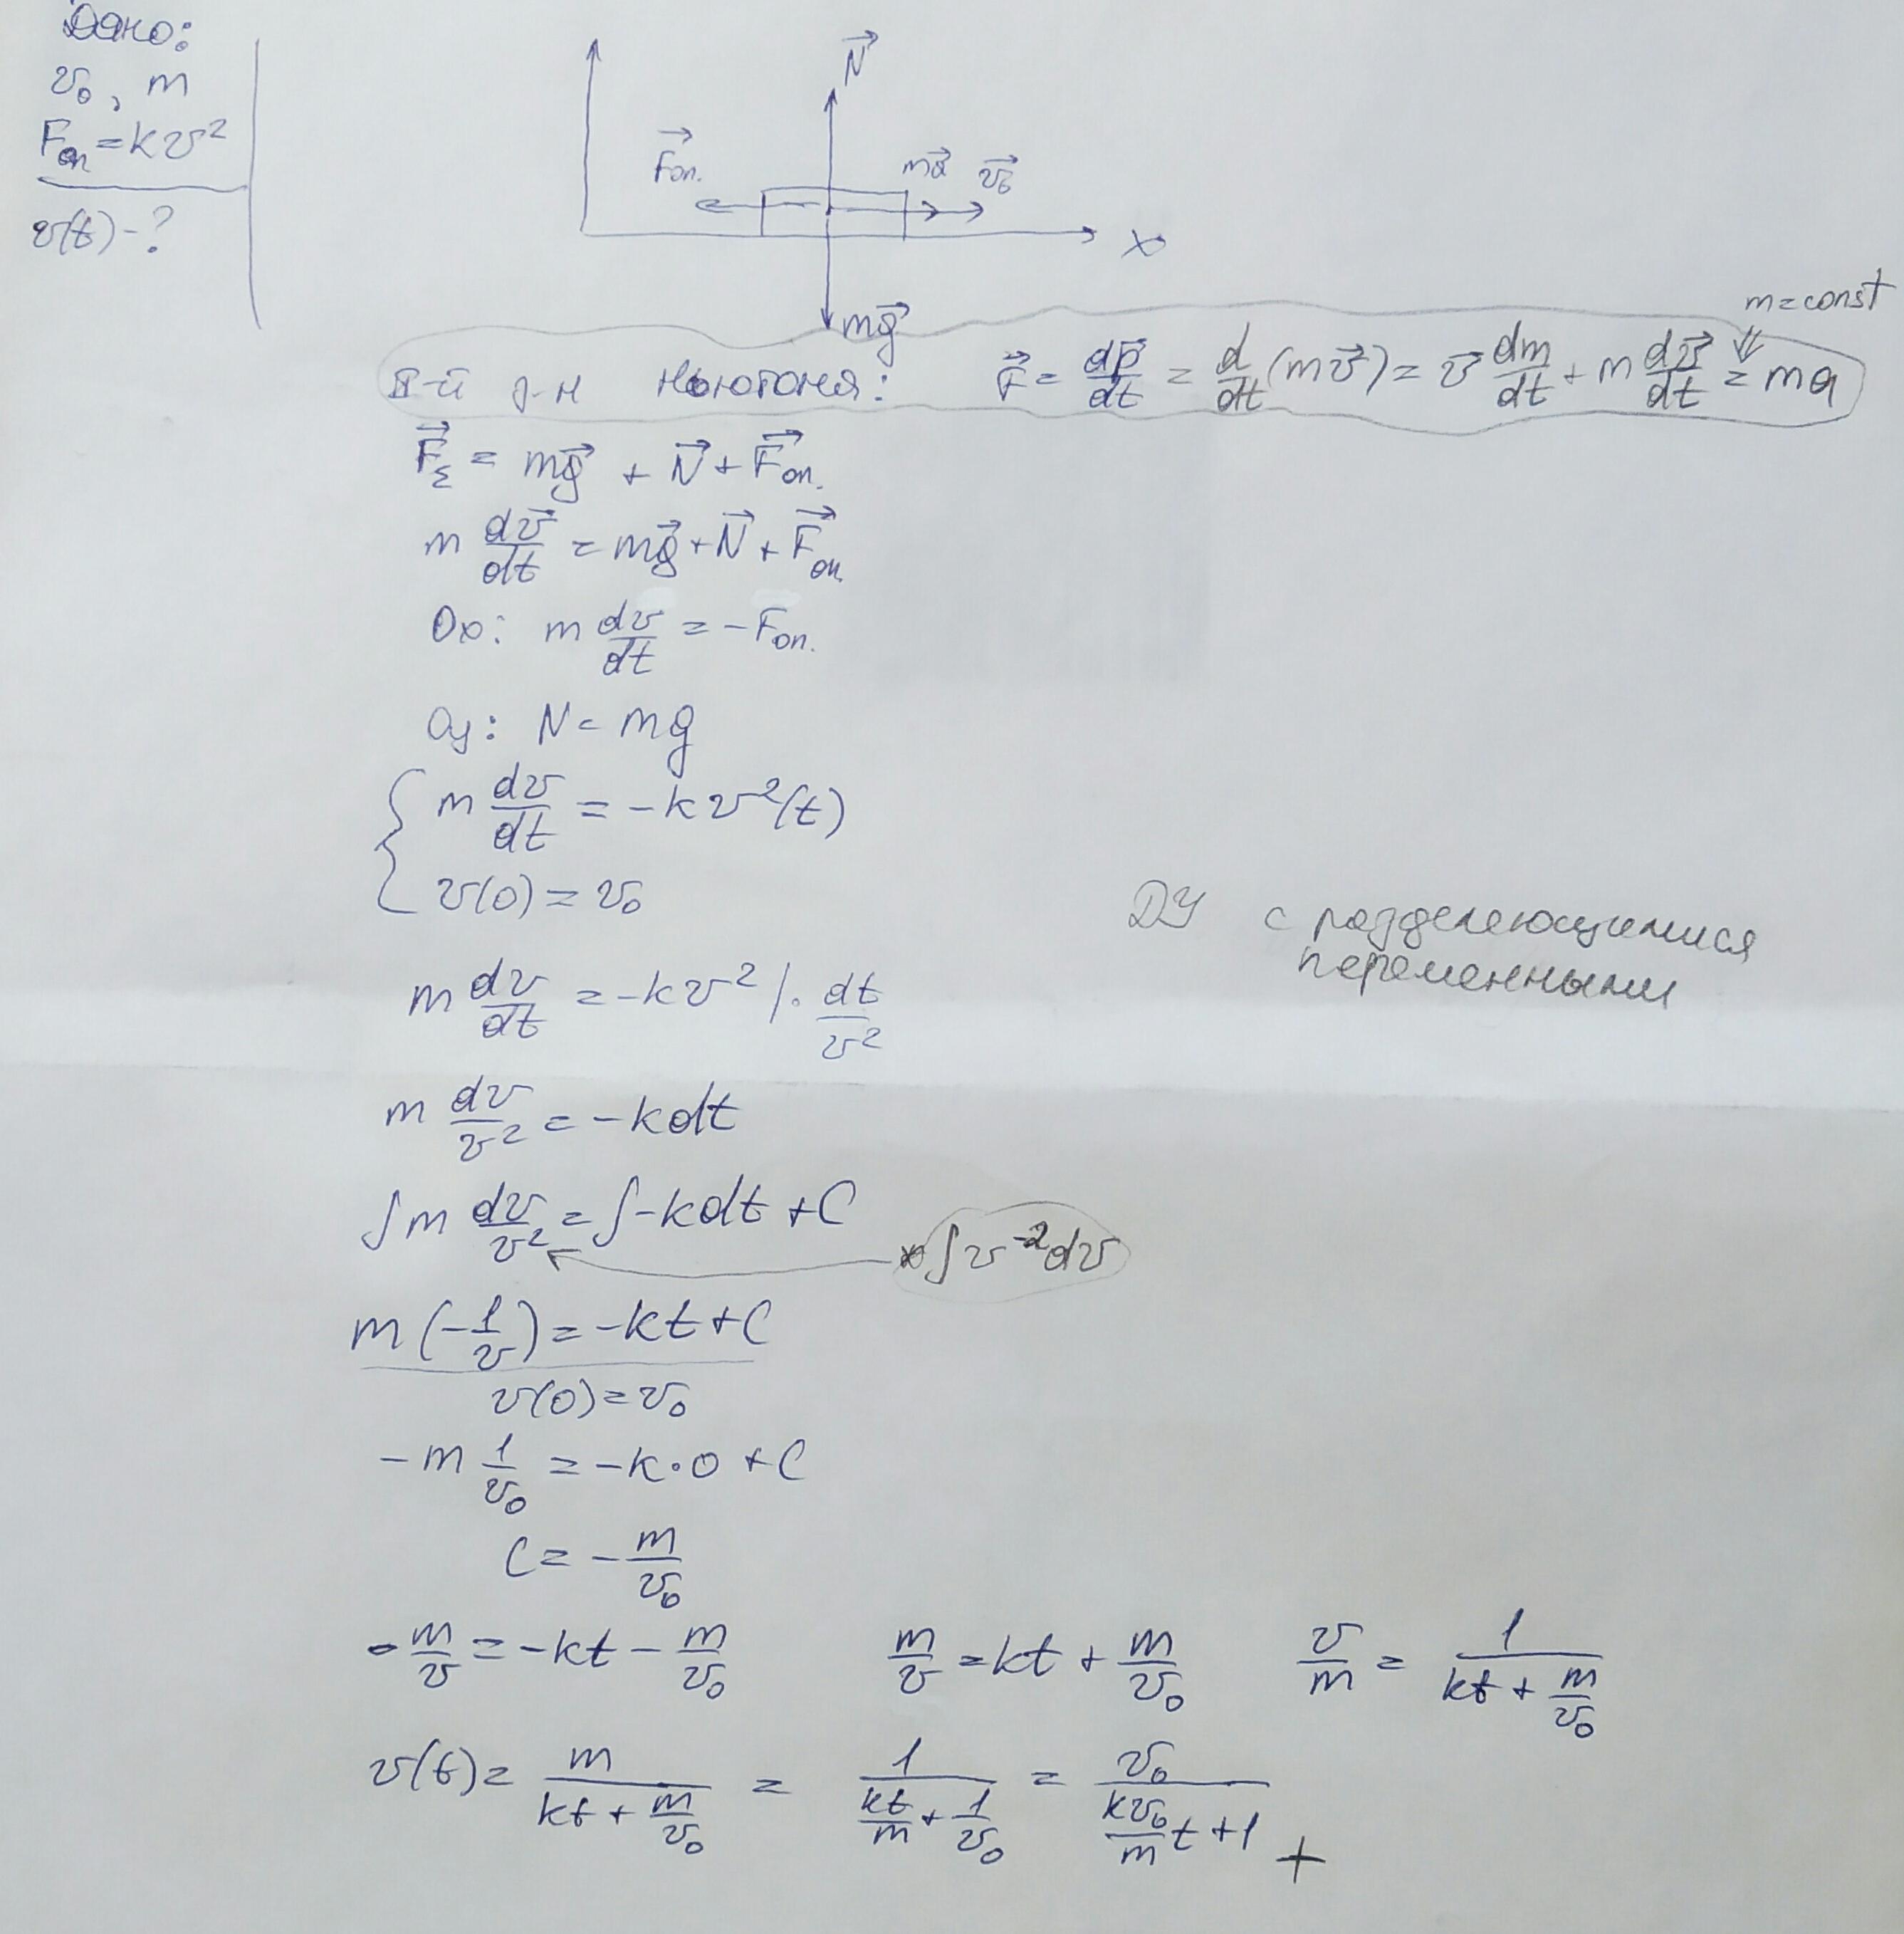 Дано:
v₀, m
Fоп = kv²
v(t) - ?
N⃗
F⃗оп.
ma⃗ v⃗₀
x
mg⃗
m = const
II-й з-н Ньютона: F⃗ = dp⃗/dt = d/dt (mv⃗) = v⃗ dm/dt + m dv⃗/dt = ma
F⃗Σ = mg⃗ + N⃗ + F⃗оп.
m dv⃗/dt = mg⃗ + N⃗ + F⃗оп.
Ox: m dv/dt = -Fоп.
Oy: N = mg
{ m dv/dt = -kv²(t)
v(0) = v₀
ДУ с разделяющимися
переменными
m dv/dt = -kv² | · dt/v²
m dv/v² = -kdt
∫m dv/v² = ∫-kdt + C
∫v⁻²dv
m(-1/v) = -kt + C
v(0) = v₀
-m 1/v₀ = -k·0 + C
C = -m/v₀
-m/v = -kt - m/v₀ m/v = kt + m/v₀ v/m = 1/(kt + m/v₀)
v(t) = m/(kt + m/v₀) = 1/(kt/m + 1/v₀) = v₀/(kv₀/m t + 1) +